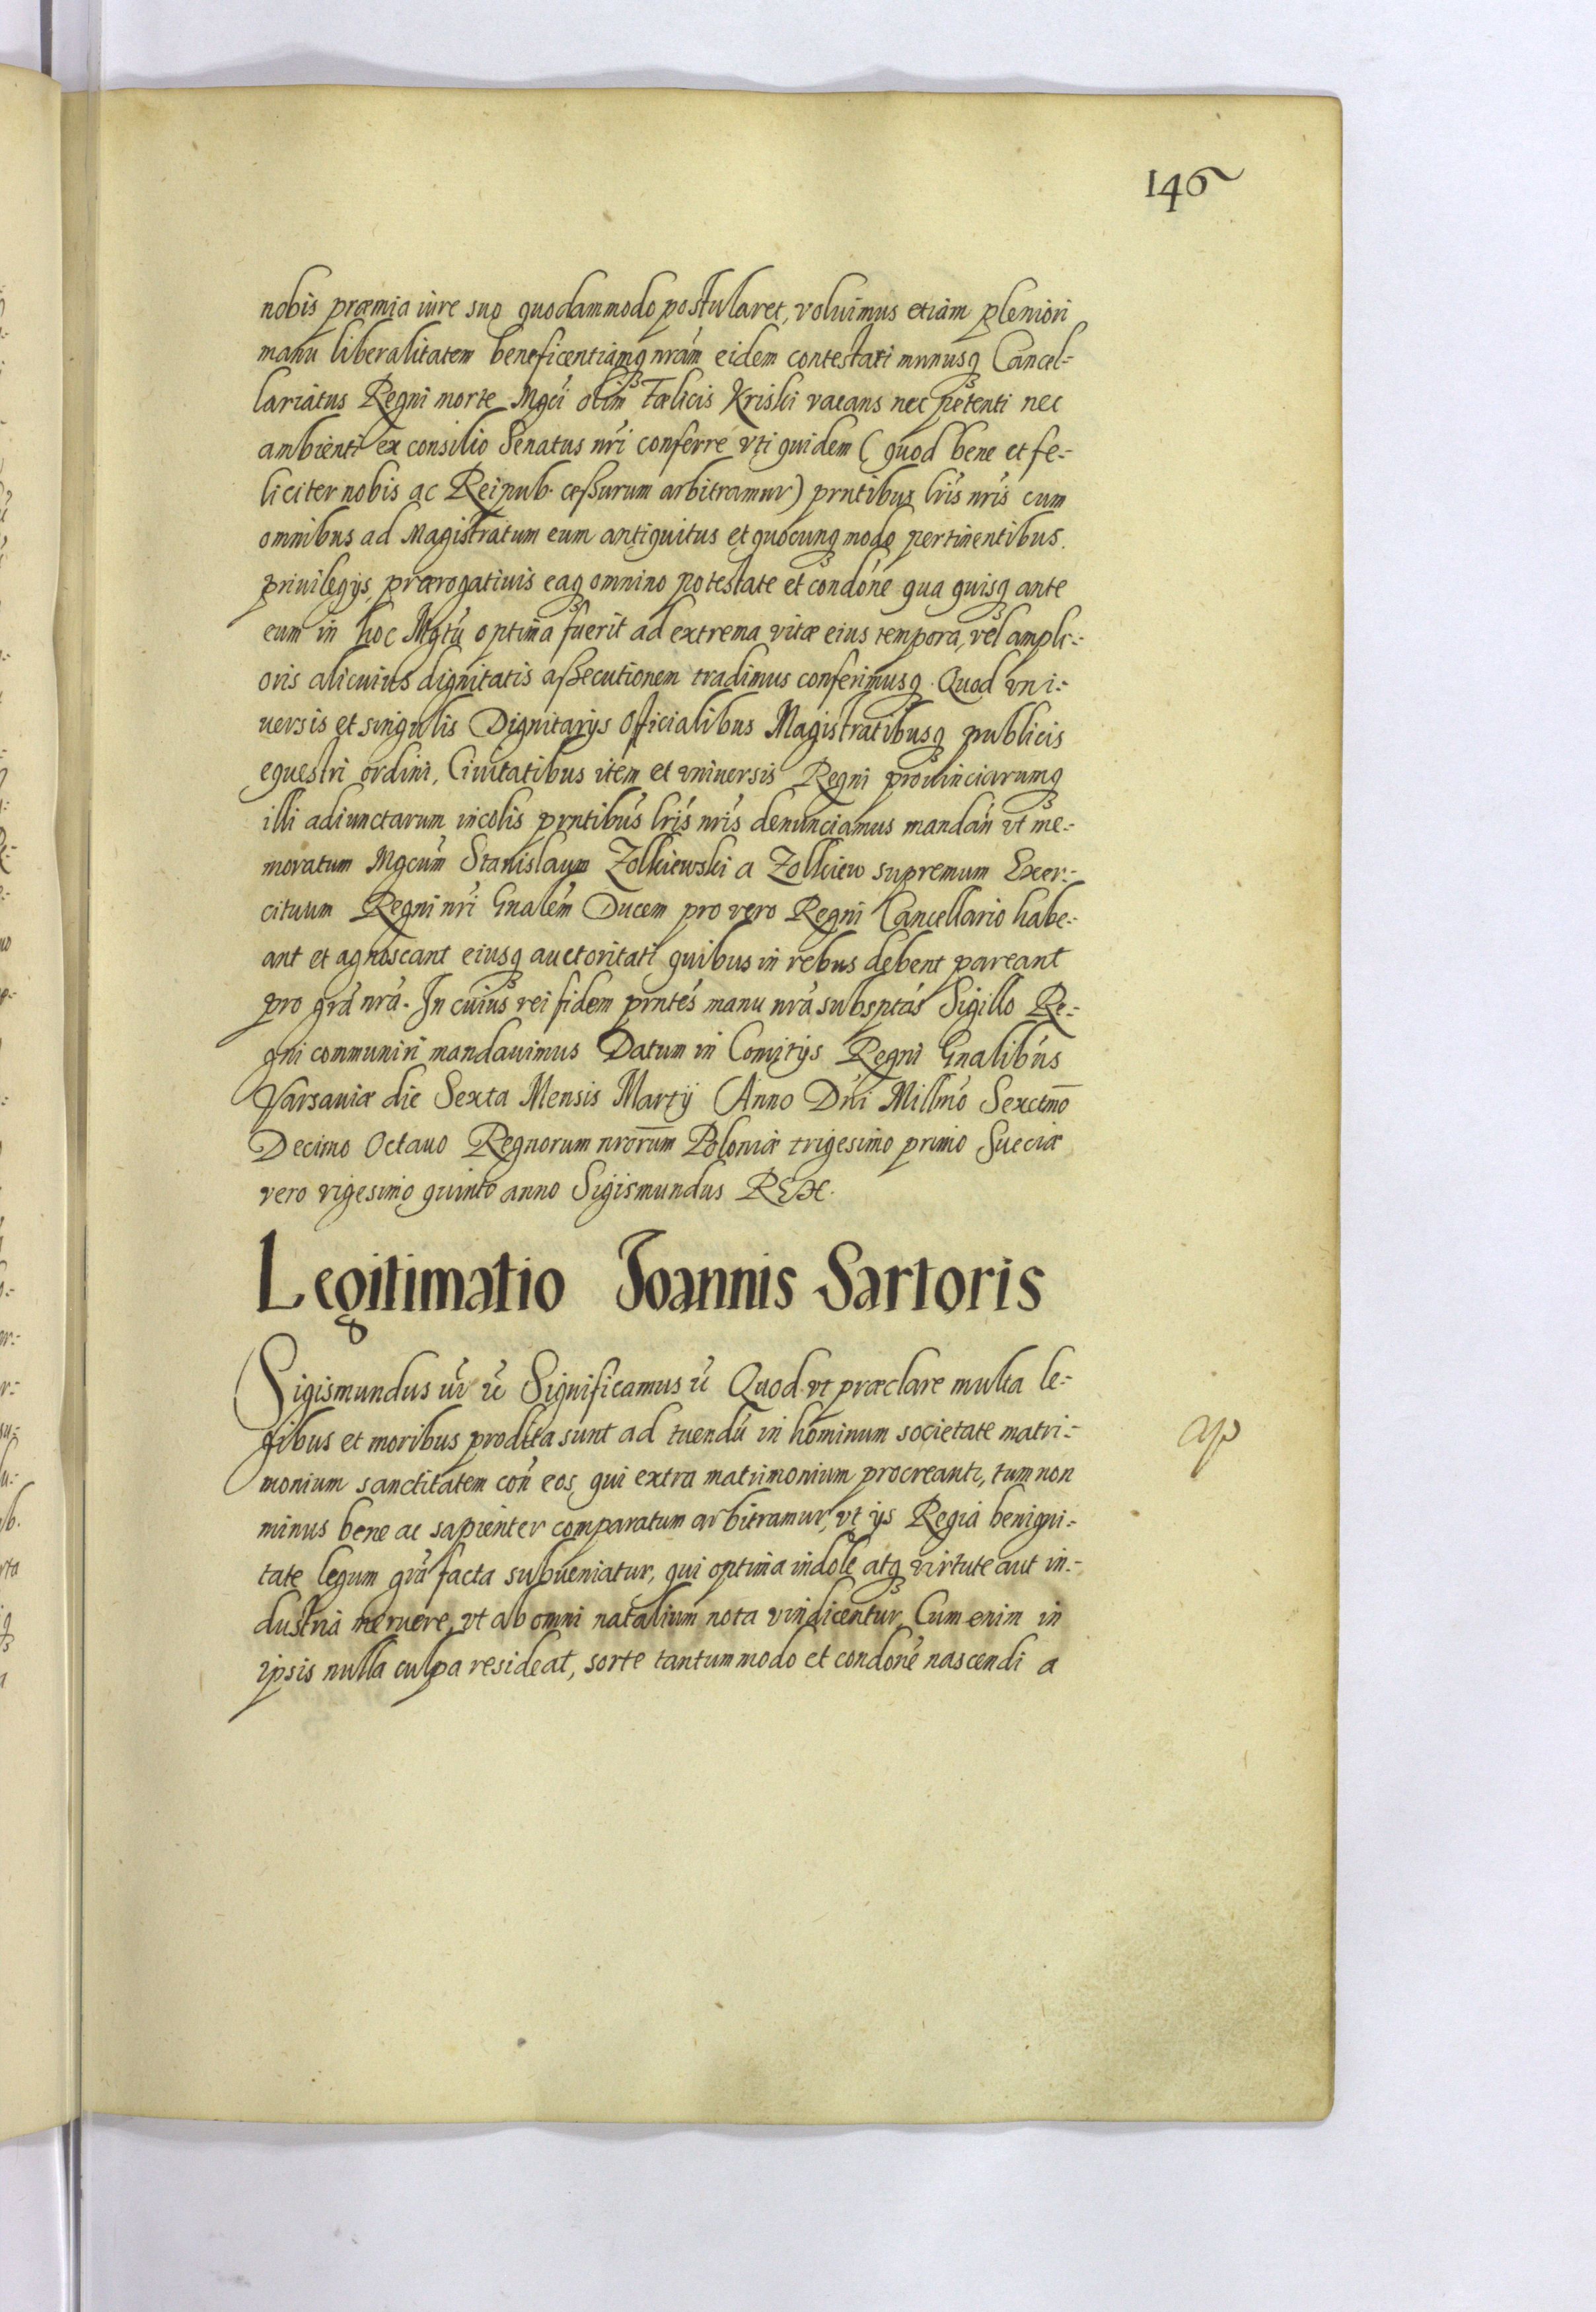 146
nobis præmia iure suo quodammodo postularet, voluimus etiam pleniori
manu liberalitatem beneficentiamq nrãm eidem contestari munusq Cancel-
lariatus Regni morte Mgci olim Fœlicis Kriski vacans nec petenti nec
ambienti ex consilio Senatus nri conferre uti quidem (quod bene et fe-
liciter nobis ac Reipub. cessurum arbitramur) prntibus lris nris cum
omnibus ad Magistratum eum antiquitus et quocunq modo pertinentibus.
privilegijs, prærogativis eaq omnino potestate et condone qua quisq ante
eum in hoc Mgtu optima fuerit ad extrema vitæ eius tempora, vel ampli-
oris alicuius dignitatis assecutionem tradimus conferimusq. Quod vni-
uersis et singulis Dignitarijs Officialibus Magistratibusq publicis
equestri ordini, Ciuitatibus item et vniuersis Regni prouinciarumq
illi adiunctarum incolis prntibus lris nris denunciamus mandan vt me-
moratum Mgcum Stanislaum Zolkiewski a Zolkiew supremum Exer-
cituum Regni nri Gnalem Ducem pro vero Regni Cancellario habe-
ant et agnoscant eiusq auctoritati quibus in rebus debent pareant
pro gra nra. In cuius rei fidem prntes manu nra subsptas Sigillo Re-
gni communiri mandauimus Datum in Comitijs Regni Gnalibus
Varsauiæ die Sexta Mensis Martij Anno Dni Millmo Sexctmo
Decimo Octauo Regnorum nrorum Poloniæ trigesimo primo Sueciæ
vero vigesimo quinto anno Sigismundus REX.
Legitimatio Joannis Sartoris
Sigismundus Significamus Quod vt præclare multa le-
gibus et moribus prodita sunt ad tuendu in hominum societate matri-
monium sanctitatem con eos, qui extra matrimonium procreanti, tum non
minus bene ac sapienter comparatum arbitramur, vt ijs Regia benigni-
tate legum gra facta subueniatur, qui optima indole atq virtute aut in-
dustria meruere, vt ab omni natalium nota vindicentur, Cum enim in
ipsis nulla culpa resideat, sorte tantummodo et condone nascendi a